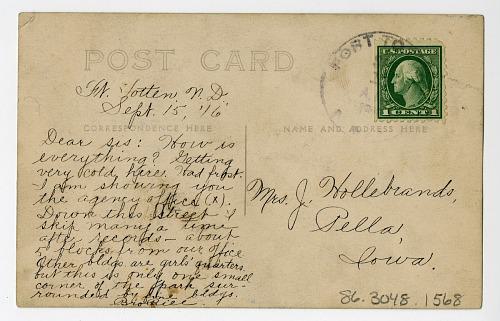 POST CARD
FORT TO
U.S. POSTAGE
1 CENT 1
Ft. Totten, N. D.
Sept. 15, '16
CORRESPONDENCE HERE
NAME AND ADDRESS HERE
Dear sis: How is
everything? Getting
very cold here. Had frost.
I am showing you
the agency office (x).
Down this street I
skip many a time
after records — about
blocks from our office
Other bldgs are girls' quarters
but this is only one small
corner of the park sur-
rounded by the bldgs.
Mrs. J. Hollebrands,
Pella,
Iowa.
86.3048.1568